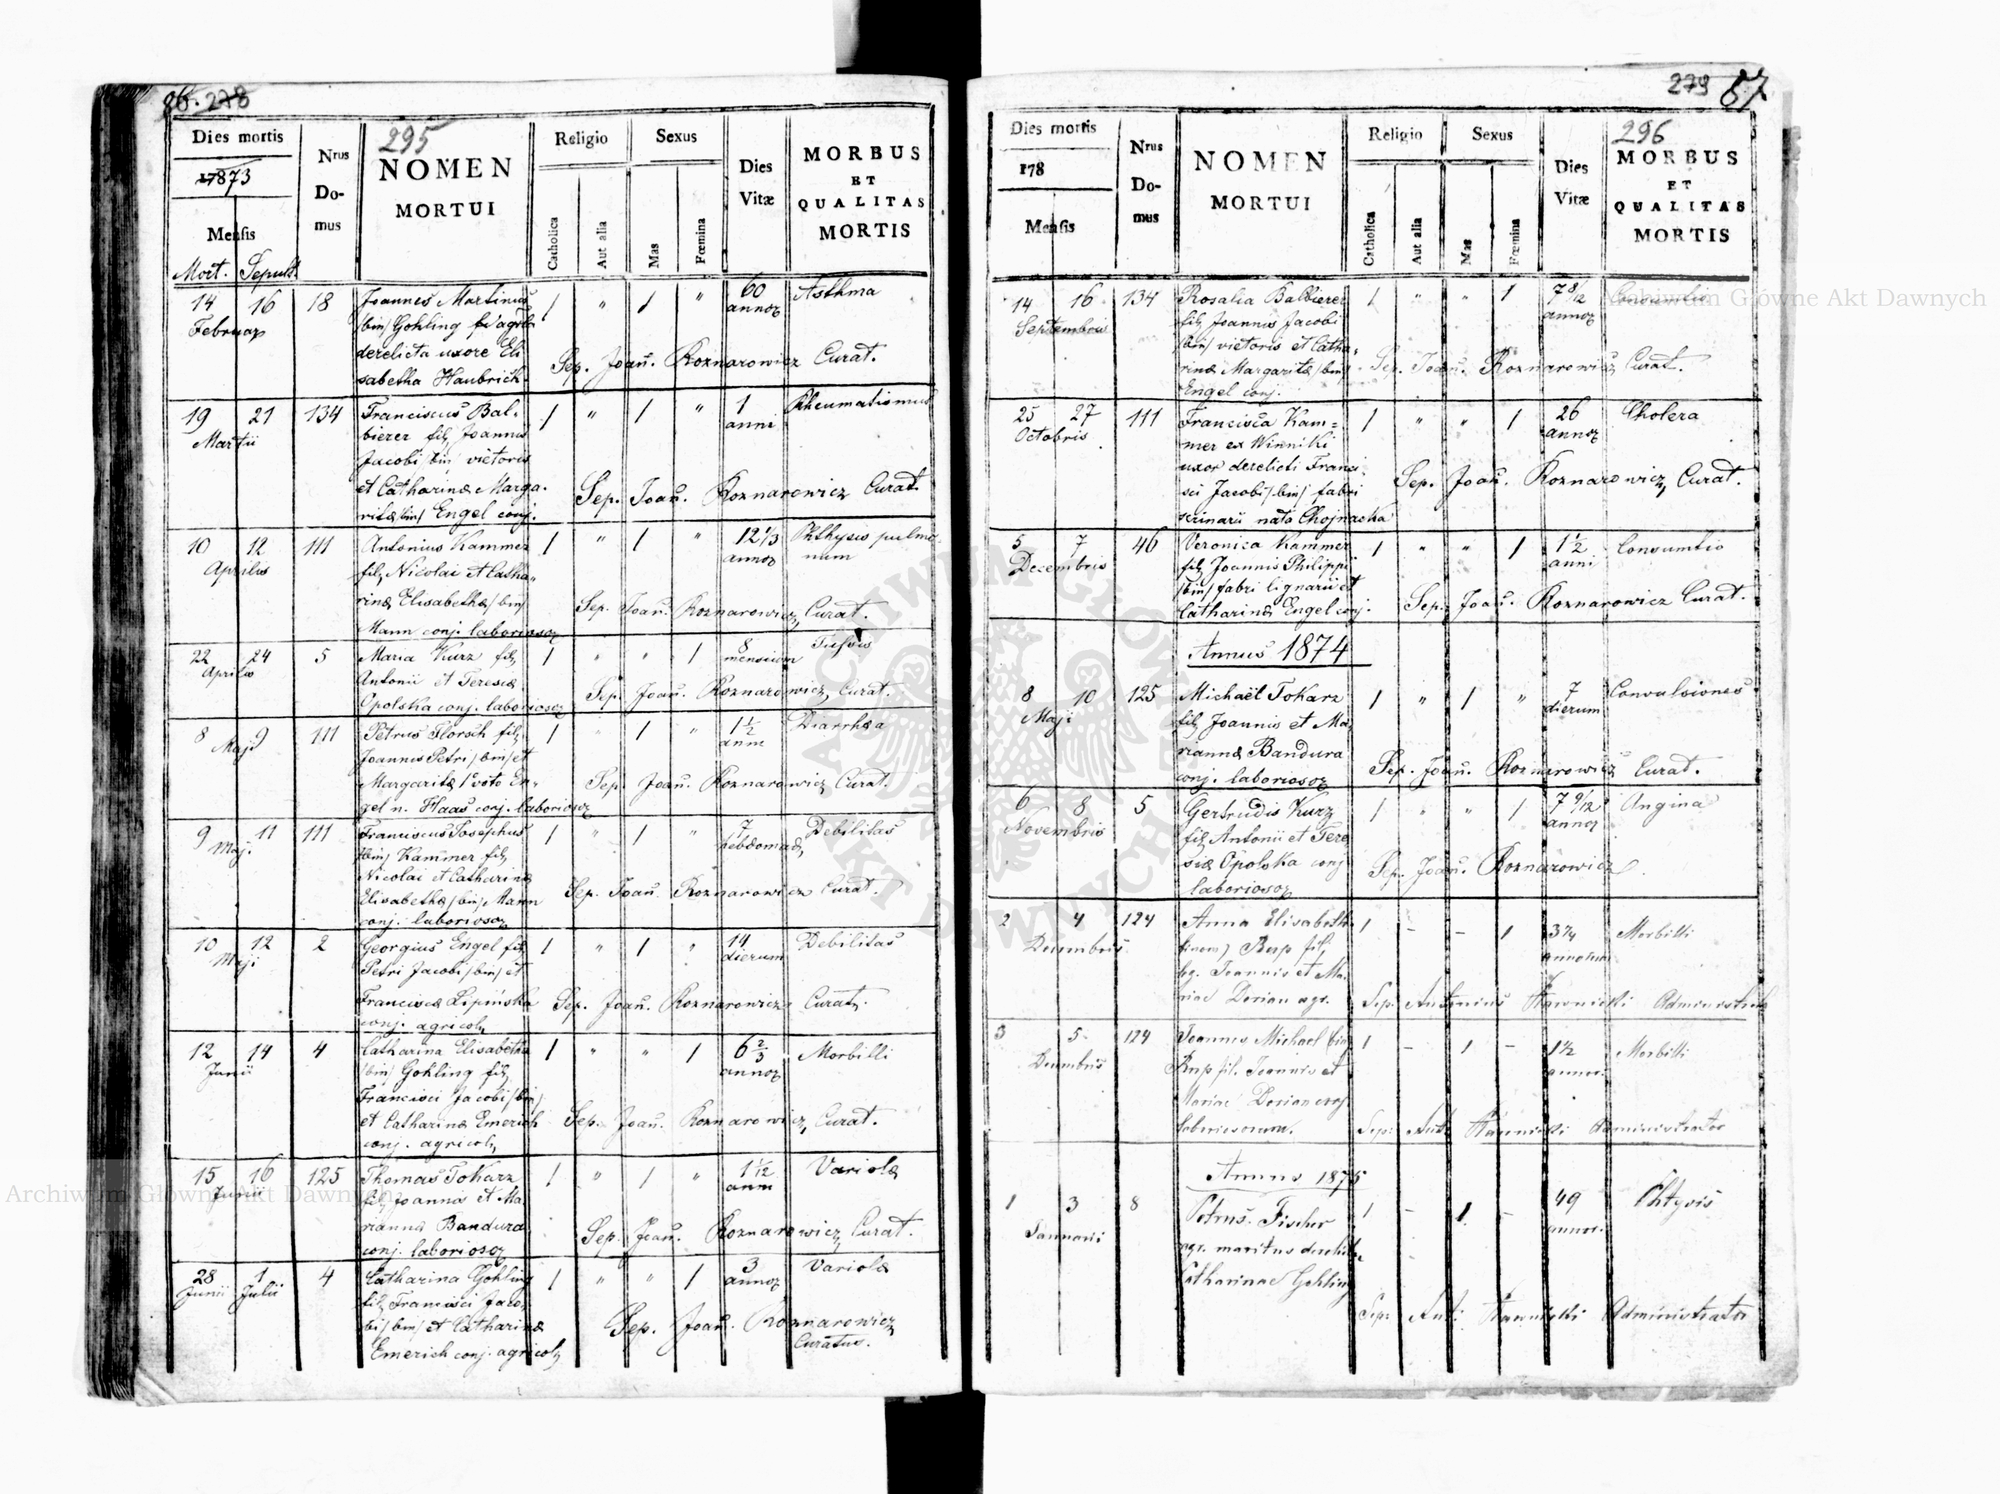 86. 278
295
Dies mortis
Nrus
Do-
mus
NOMEN
MORTUI
Religio
Sexus
Dies
Vitæ
MORBUS
ET
QUALITAS
MORTIS
17873
Mensis
Catholica
Aut alia
Mas
Fœmina
Mort. Sepult.
14 16 18 Joannes Martinus 1 " 1 " 60 Asthma
Februar /bin/ Gohling annor
derelicta uxore Eli
sabetha Haubrich Sep. Joan. Roznarowicz Curat.
19 21 134 Franciscus Bal- 1 " 1 " 1 Rheumatismus
Martii bierer fil Joannis anni
Jacobi /bin/ vietoris
et Catharinæ Marga-
ritæ /bin/ Engel conj. Sep. Joan. Roznarowicz Curat.
10 12 111 Antonius Kammer 1 " 1 " 12 1/3 Phthysis pulmo-
Aprilis fil Nicolai et Catha- annor num
rinæ Elisabethæ /bin/
Mann conj. laboriosor Sep. Joan. Roznarowicz Curat.
22 24 5 Maria Kurz fil 1 " " 1 8 Tussis
Aprilis Antonii et Teresiæ mensium
Opolska conj. laboriosor Sep. Joan. Roznarowicz Curat.
8 9 111 Petrus Florsch fil 1 " 1 " 1 1/2 Diarrhæa
Maji Joannis Petri /bin/ et anni
Margaritæ 1 voto En-
gel n. Haas conj. laboriosor Sep. Joan. Roznarowicz Curat.
9 11 111 Franciscus Josephus 1 " 1 " 7 Debilitas
Maji /bin/ Kammer fil hebdomad
Nicolai et Catharinæ
Elisabethæ /bin/ Mann Sep. Joan. Roznarowicz Curat.
conj. laboriosor
10 12 2 Georgius Engel fil 1 " 1 " 14 Debilitas
Maji Petri Jacobi /bin/ et dierum
Franciscæ Lipińska Sep. Joan. Roznarowicz Curat.
conj. agricol
12 14 4 Catharina Elisabetha 1 " " 1 6 2/3 Morbilli
Junii /bin/ Gohling fil annor
Francisci Jacobi /bin/
et Catharinæ Emerich Sep. Joan. Roznarowicz Curat.
conj. agricol
15 16 125 Thomas Tokarz 1 " 1 " 1 1/12 Variolæ
Junii fil Joannis et Ma- anni
riannæ Bandura
conj. laboriosor Sep. Joan. Roznarowicz Curat.
28 1 4 Catharina Gohling 1 " " 1 3 Variolæ
Junii Julii fil Francisci Jaco- annor
bi /bin/ et Catharinæ Sep. Joan. Roznarowicz
Emerich conj. agricol Curatus.
279 87
296
Dies mortis
Nrus
Do-
mus
NOMEN
MORTUI
Religio
Sexus
Dies
Vitæ
MORBUS
ET
QUALITAS
MORTIS
178
Mensis
Catholica
Aut alia
Mas
Fœmina
14 16 134 Rosalia Balbierer 1 " " 1 7 8/12 Consumtio
Septembris fil Joannis Jacobi annor
/bin/ vietoris et Catha-
rinæ Margaritæ /bin/ Sep. Joan. Roznarowicz Curat.
Engel conj.
25 27 111 Francisca Kam- 1 " " 1 26 Cholera
Octobris mer ex Winniki annor
uxor derelicti Franci-
sci Jacobi /bin/ fabri Sep. Joan. Roznarowicz Curat.
scrinarii nata Chojnacka
5 7 46 Veronica Kammer 1 " " 1 1 1/2 Consumtio
Decembris fil Joannis Philippi anni
/bin/ fabri lignarii et
Catharinæ Engel conj. Sep. Joan. Roznarowicz Curat.
Annus 1874
8 10 125 Michaël Tokarz 1 " 1 " 7 Convulsiones
Maji fil Joannis et Ma- dierum
riannæ Bandura
conj. laboriosor Sep. Joan. Roznarowicz Curat.
6 8 5 Gertrudis Kurz 1 " " 1 7 9/12 Angina
Novembris fil Antonii et Tere- annor
siæ Opolska conj
laboriosor Sep. Joan. Roznarowicz
2 4 124 Anna Elisabeth 1 - - 1 3 3/4 Morbilli
Decembris fil annorum
leg. Joannis et Ma-
riae Dorian agr. Sep. Antonius Administrator
3 5 124 Joannes Michael /bin 1 - 1 - 1 1/2 Morbilli
Decembris fil. Joannis et annor.
Mariae Dorian conj.
laboriosorum. Sep. Ant. Administrator
Annus 1875
1 3 8 Petrus Fischer 1 - 1 - 49 Phtysis
Januarii agr. maritus derelictæ annor.
Catharinae Gohling
Sep. Ant. Administrator
ARCHIWUM GŁÓWNE AKT DAWNYCH
Archiwum Główne Akt Dawnych
Archiwum Główne Akt Dawnych